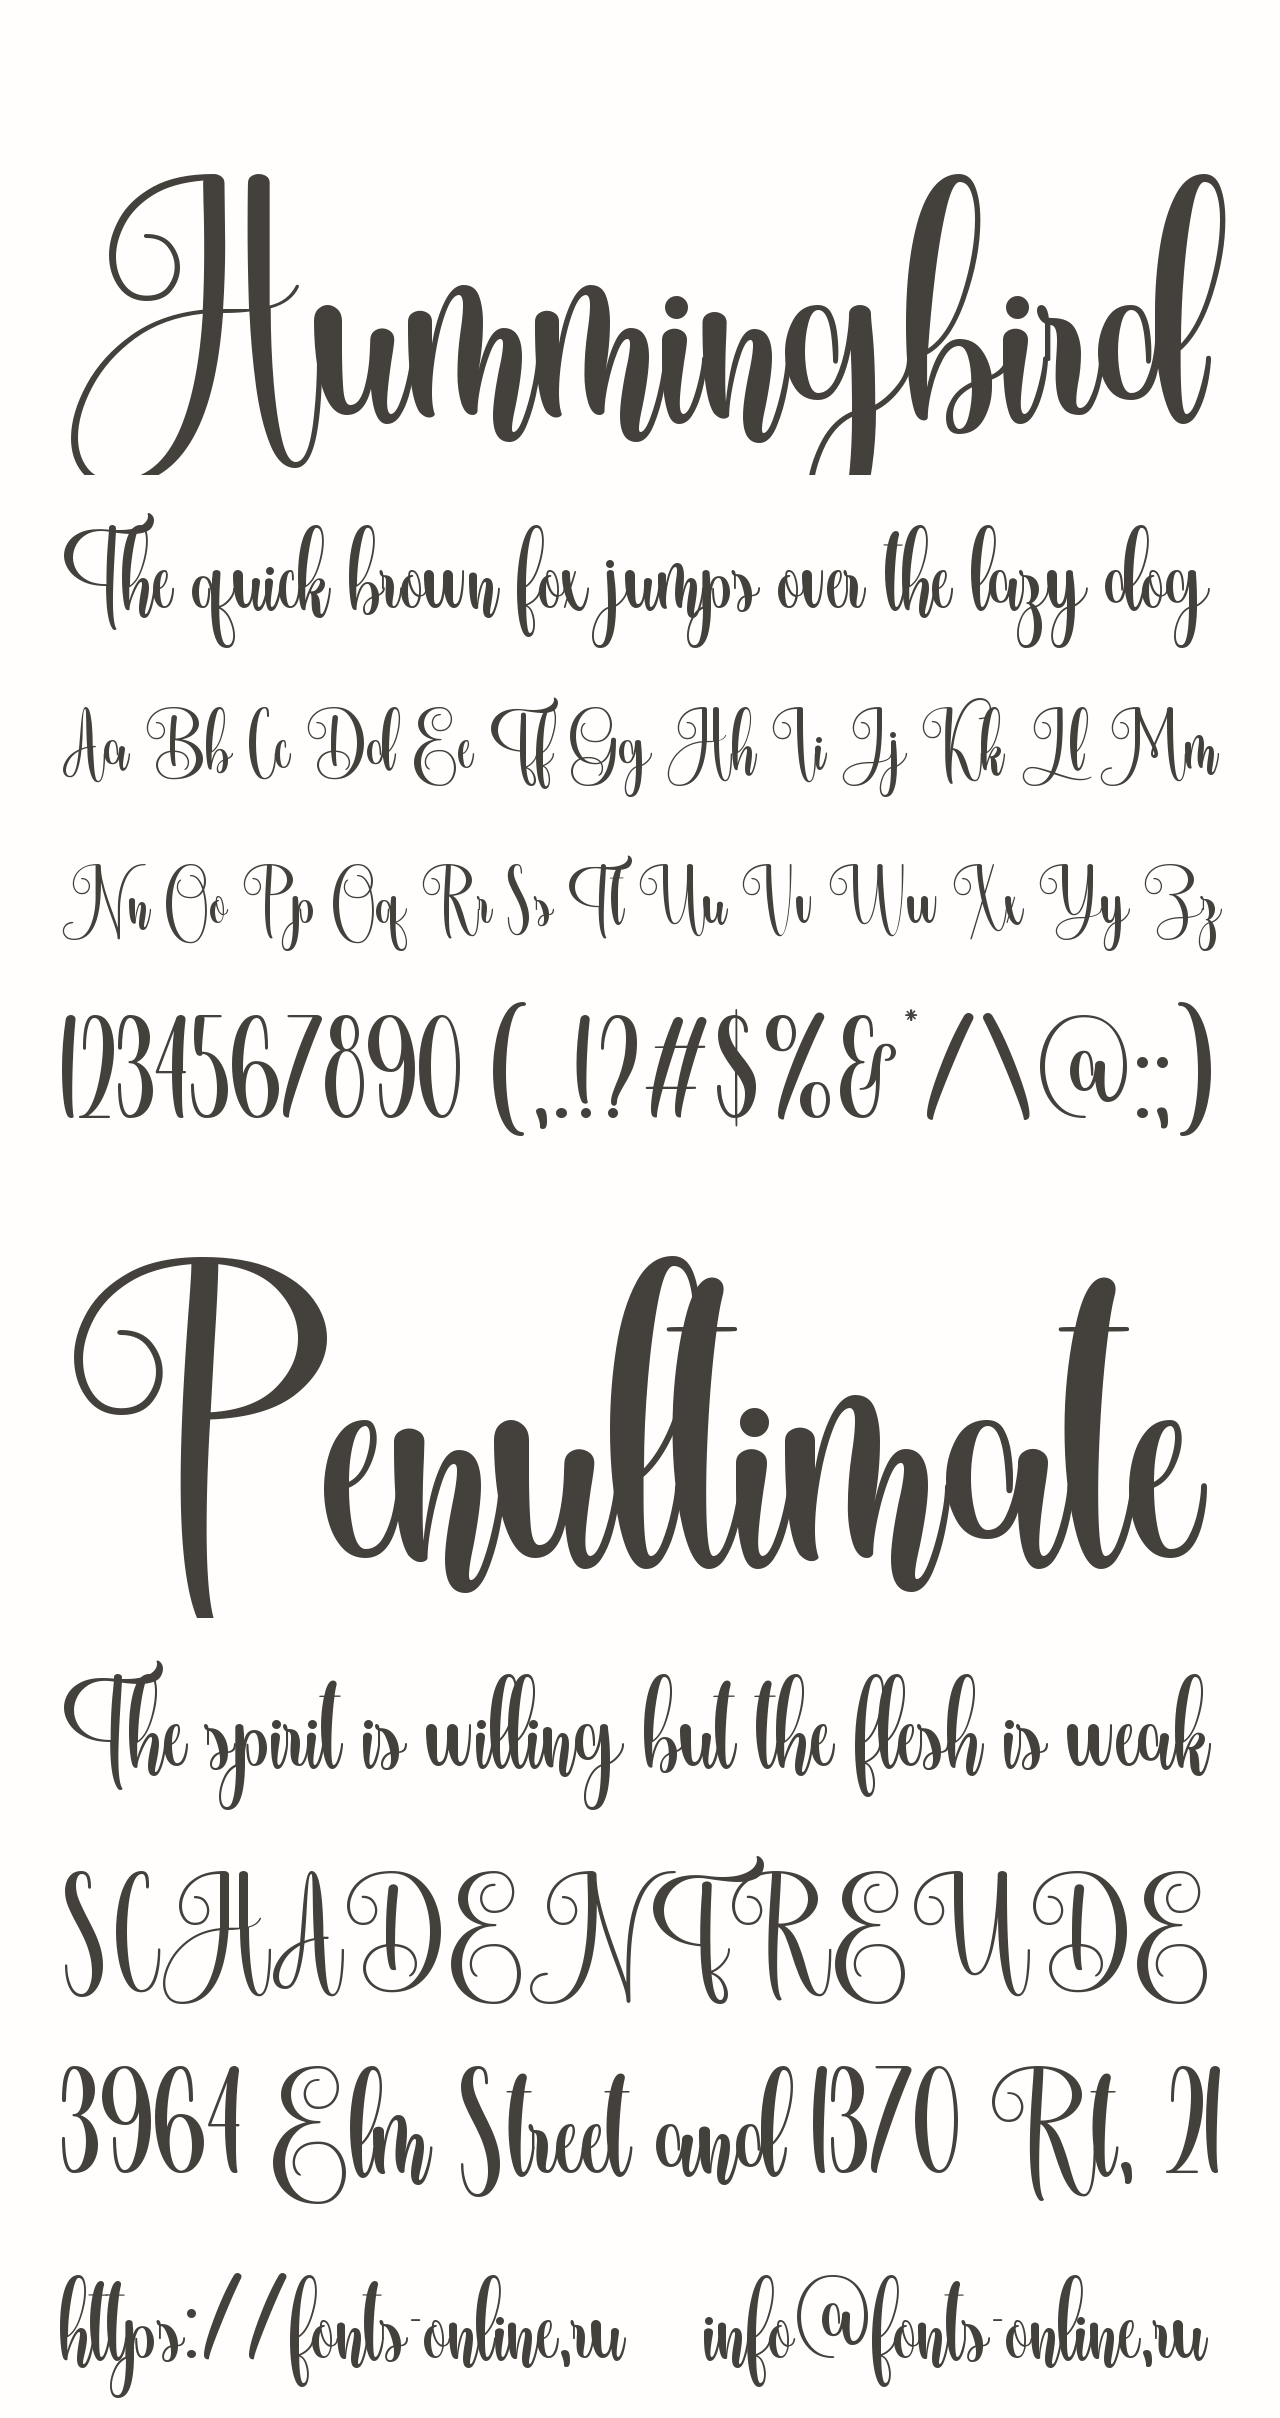 Hummingbird
The quick brown fox jumps over the lazy dog
Aa Bb Cc Dd Ee Ff Gg Hh Ii Jj Kk Ll Mm
Nn Oo Pp Qq Rr Ss Tt Uu Vv Ww Xx Yy Zz
1234567890 (,.!?#$%&*/\@:;)
Penultimate
The spirit is willing but the flesh is weak
SCHADENFREUDE
3964 Elm Street and 1370 Rt, 21
https://fonts-online,ru info@fonts-online,ru